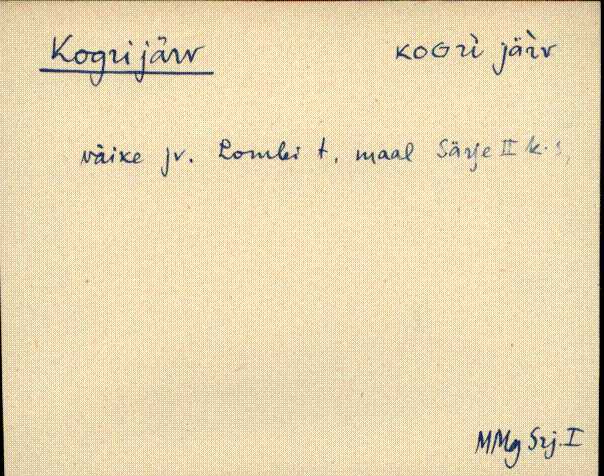 Kogrijärv
KOGRÌ jäìrv
väike jv. Lombi t. maal Särje II k. s.
MMg Srj. I